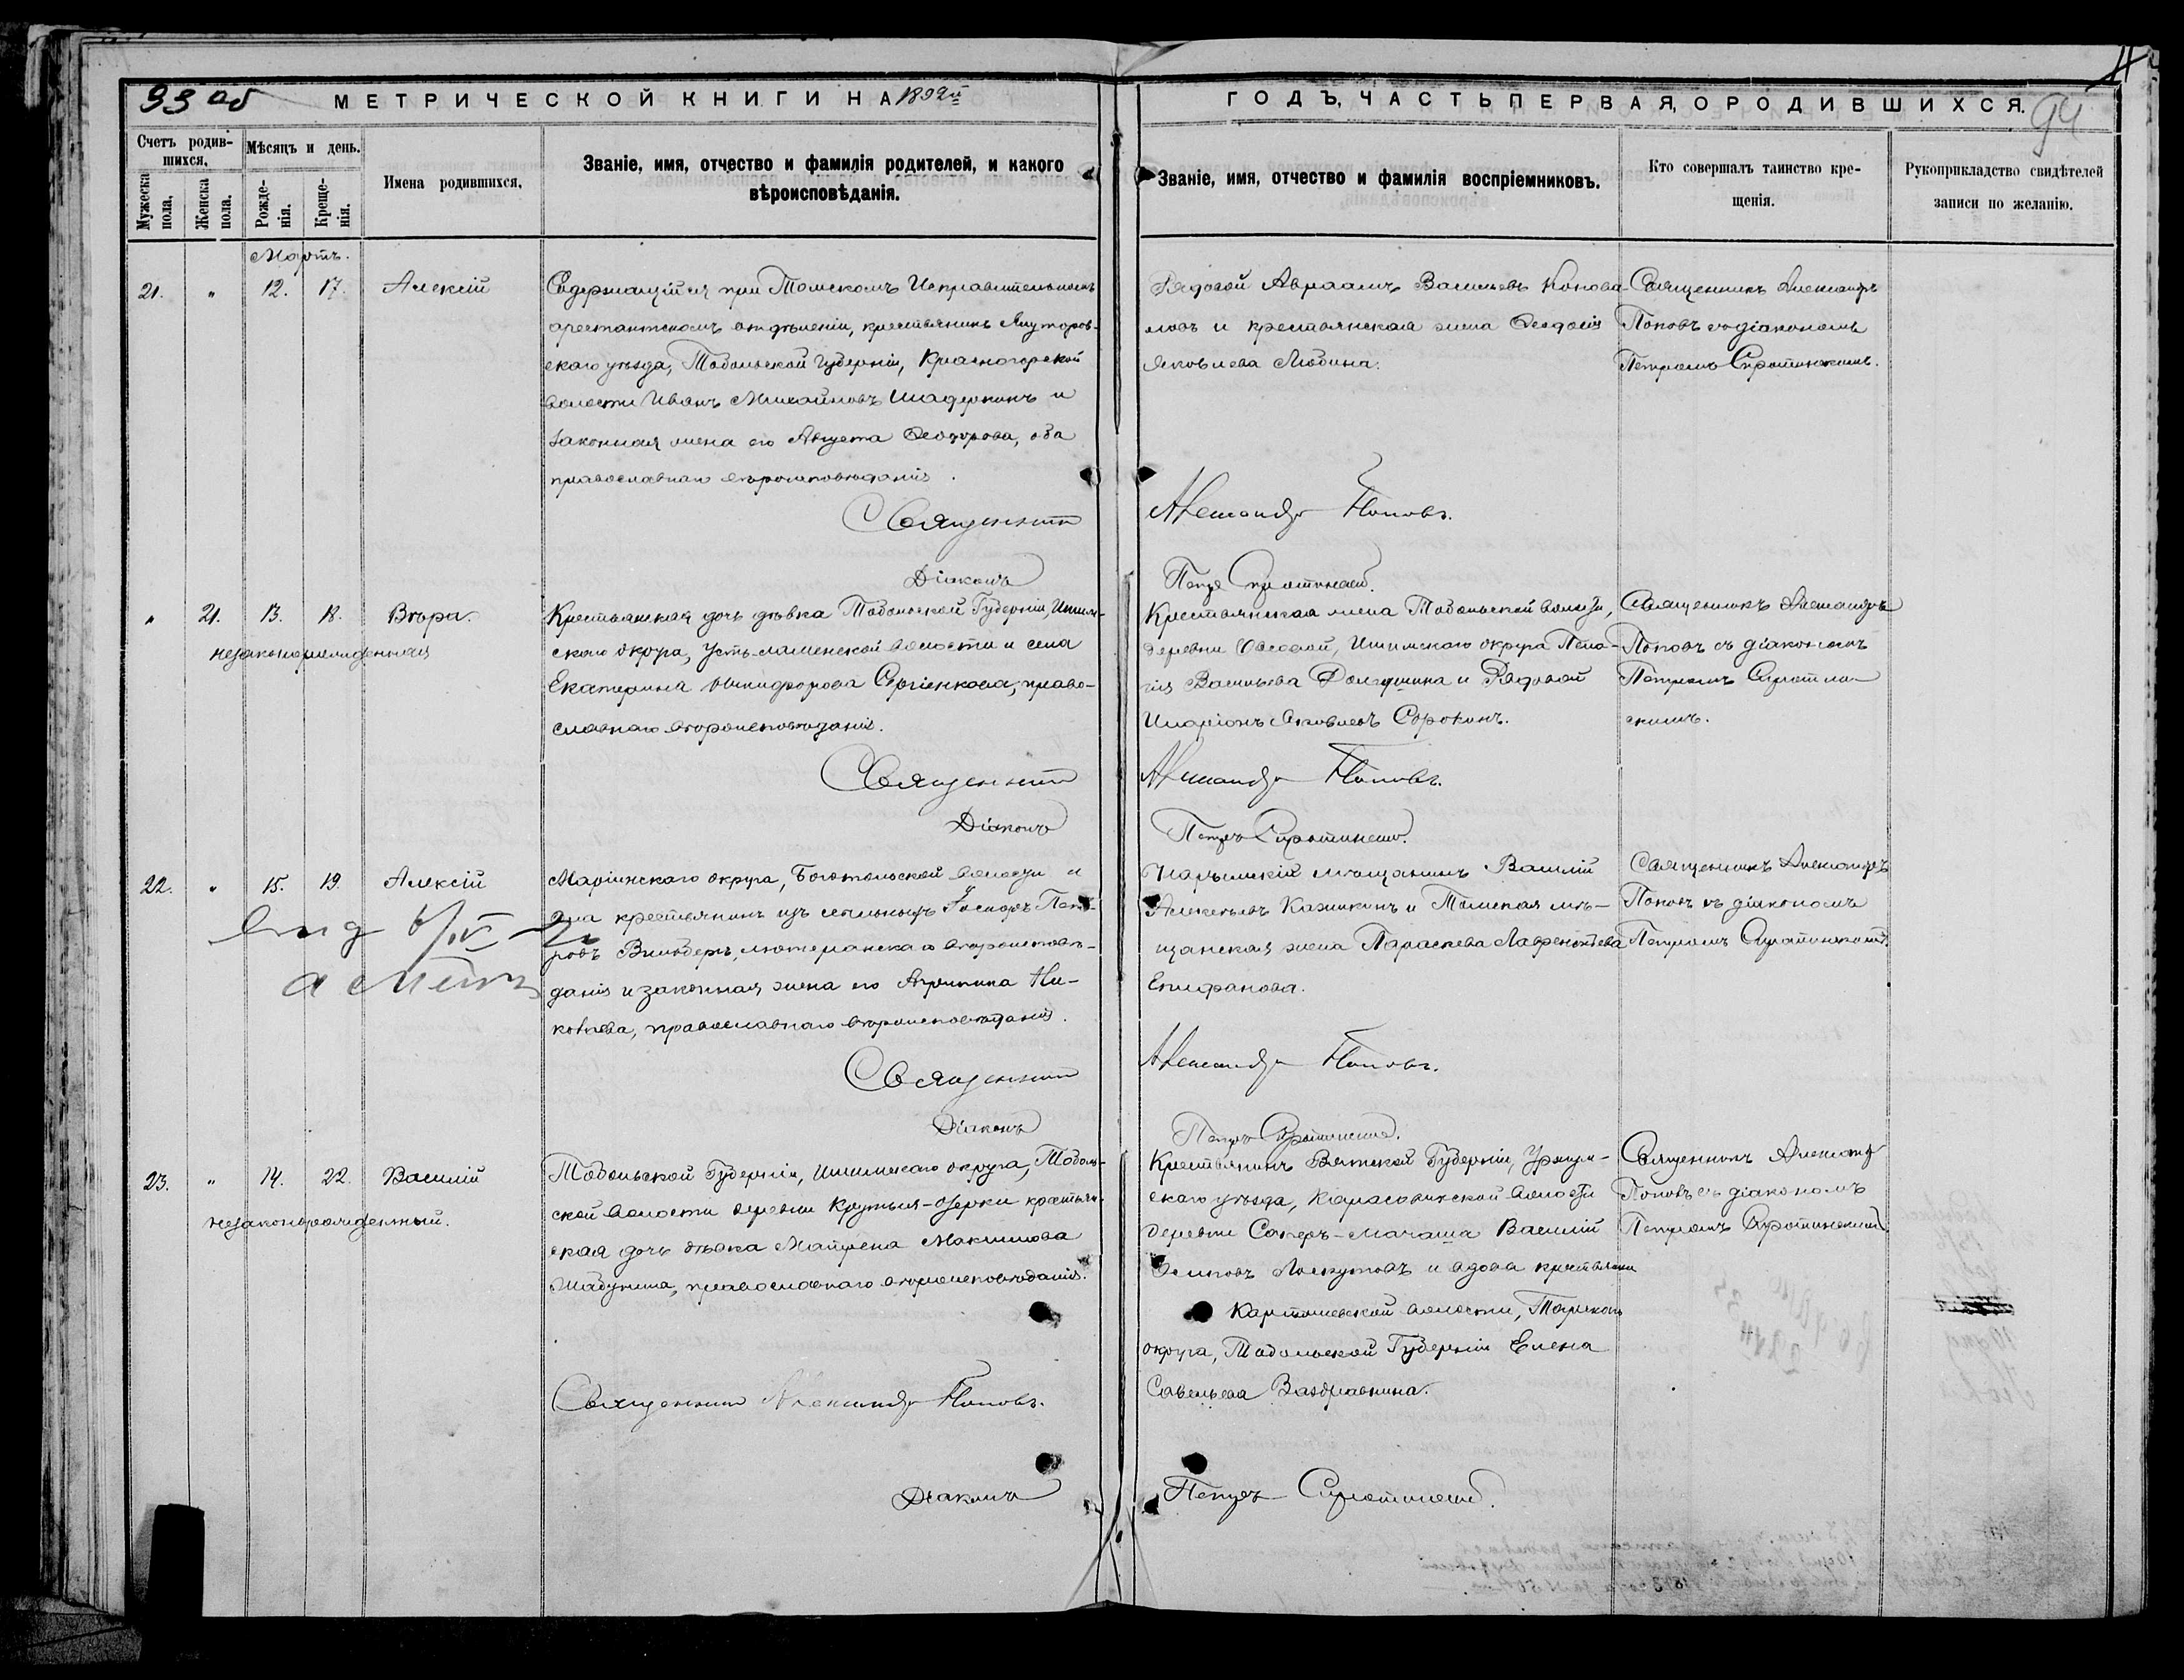 93 об
МЕТРИЧЕСКОЙ КНИГИ НА 1892й
ГОДЪ, ЧАСТЬ ПЕРВАЯ, О РОДИВШИХСЯ.
94
Счетъ родив-
шихся.
Мужеска пола.
Женска пола.
Мѣсяцъ и день.
Рожде-
нія.
Креще-
нія.
Имена родившихся.
Званіе, имя, отчество и фамилія родителей, и какого
вѣроисповѣданія.
Званіе, имя, отчество и фамилія воспріемниковъ.
Кто совершалъ таинство кре-
щенія.
Рукоприкладство свидѣтелей
записи по желанію.
Мартъ.
21. " 12. 17. Алексій
Содержащійся при Томскомъ Исправительномъ
арестантскомъ отдѣленіи, крестьянинъ Ялуторов-
скаго уѣзда, Тобольской Губерніи, Красногорской
волости Иванъ Михайловъ Шадеркинъ и
законная жена его Августа Ѳеодорова, оба
православнаго вѣроисповѣданія.
Рядовой Авраамъ Васильевъ Конова-
ловъ и крестьянская жена Ѳеодосія
Яковлева Любина.
Священникъ Александръ
Поповъ съ діакономъ
Петромъ Сиротинскимъ.
Священникъ Александръ Поповъ.
Діаконъ Петръ Сиротинскій.
" 21. 13. 18. Вѣра.
незаконнорожденная
Крестьянская дочь дѣвка Тобольской Губерніи, Ишим-
скаго округа, Усть-ламенской волости и села
Екатерина Никифорова Сергіенкова, право-
славнаго вѣроисповѣданія.
Крестьянская жена Тобольской волости,
деревни Ишимскаго округа Пела-
гія Васильева Долгушина и Рядовой
Иларіонъ Яковлевъ Сорокинъ.
Священникъ Александръ
Поповъ съ діакономъ
Петромъ Сиротин-
скимъ.
Священникъ Александръ Поповъ.
Діаконъ Петръ Сиротинскій.
22. " 15. 19. Алексій
Маріинскаго округа, Боготольской волости и
села крестьянинъ изъ ссыльныхъ Пет-
ровъ лютеранскаго вѣроисповѣ-
данія и законная жена его Агрипина Ни-
православнаго вѣроисповѣданія.
Нарымскій мѣщанинъ Василій
Алексѣевъ Кажикинъ и Томская мѣ-
щанская жена Параскева Лаврентьева
Епифанова.
Священникъ Александръ
Поповъ съ діакономъ
Петромъ Сиротинскимъ.
Священникъ Александръ Поповъ.
Діаконъ Петръ Сиротинскій.
23. " 14. 22. Василій
незаконнорожденный.
Тобольской Губерніи, Ишимскаго округа, Тоболь-
ской волости деревни Крутыя-Озерки крестьян-
ская дочь дѣвка Матрена Максимова
Шабунина, православнаго вѣроисповѣданія.
Крестьянинъ Вятской Губерніи, Уржум-
скаго уѣзда, волости
деревни Василій
Осиповъ Лоскутовъ и вдова крестьянка
Карташевской волости, Тарскаго
округа, Тобольской Губерніи Елена
Савельева
Священникъ Александръ
Поповъ съ діакономъ
Петромъ Сиротинскимъ.
Священникъ Александръ Поповъ.
Діаконъ Петръ Сиротинскій.